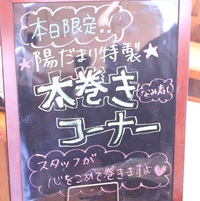 本日限定
陽だまり特製
太巻き
コーナー
スタッフが
心をこめて巻きますよ